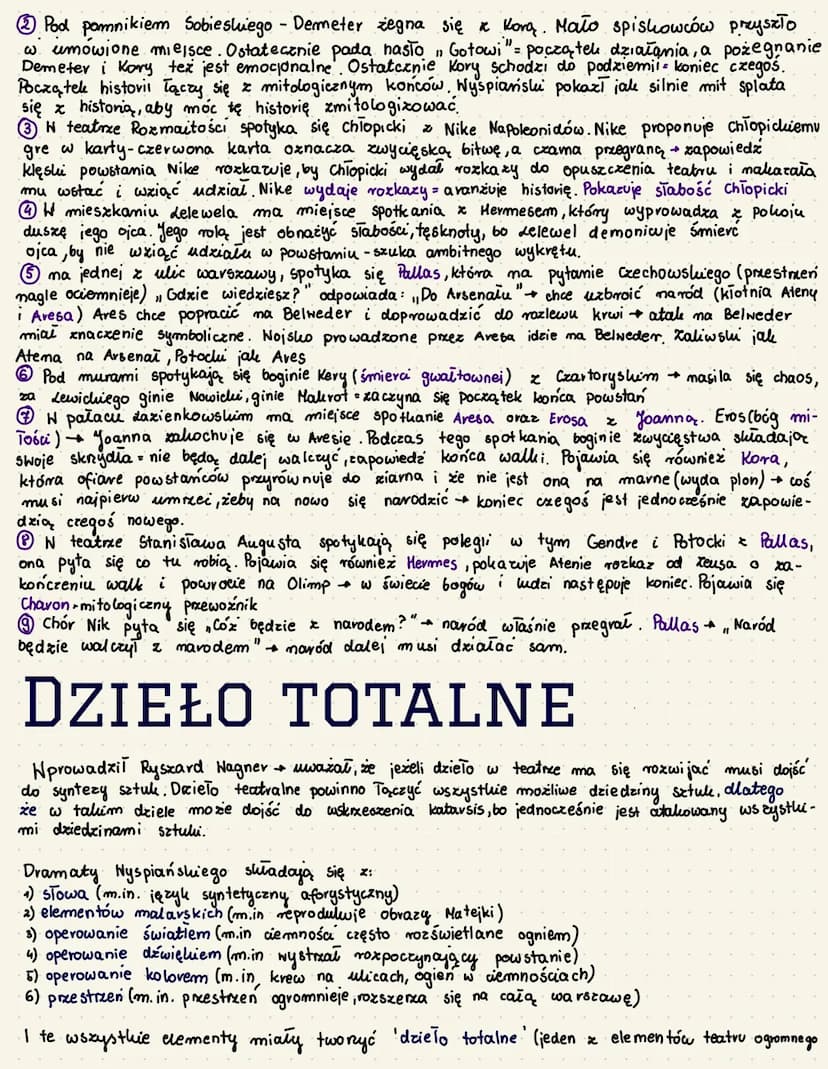 ② Pod pomnikiem Sobieskiego - Demeter żegna się z Korą. Mało spiskowców przyszło
w umówione miejsce. Ostatecznie pada hasło „Gotowi" = początek działania, a pożegnanie
Demeter i Kory też jest emocjonalne. Ostatecznie Kory schodzi do podziemii = koniec czegoś.
Początek historii łączy się z mitologicznym końców. Wyspiański pokazł jak silnie mit splata
się z historią, aby móc tę historię zmitologizować.
③ W teatrze Rozmaitości spotyka się Chłopicki z Nike Napoleonidów. Nike proponuje Chłopickiemu
grę w karty - czerwona karta oznacza zwycięską bitwę, a czarna przegraną → zapowiedź
klęski powstania Nike rozkazuje, by Chłopicki wydał rozkazy do opuszczenia teatru i nakazała
mu wstać i wziąć udział. Nike wydaje rozkazy = aranżuje historię. Pokazuje słabość Chłopicki
④ W mieszkaniu Lelewela ma miejsce spotkania z Hermesem, który wyprowadza z pokoju
duszę jego ojca. Jego rolą jest obnażyć słabości, tęsknoty, bo Lelewel demonicuje śmierć
ojca, by nie wziąć udziału w powstaniu - szuka ambitnego wykrętu.
⑤ na jednej z ulic warszawy, spotyka się Pallas, która na pytanie Czechowskiego (przestrzeń
nagle ociemnieje) „Gdzie wiedziesz?" odpowiada: „Do Arsenału" → chce uzbroić naród (kłótnia Ateny
i Aresa) Ares chce popracić na Belweder i doprowadzić do rozlewu krwi → atak na Belweder
miał znaczenie symboliczne. Wojsko prowadzone przez Aresa idzie na Belweder. Zaliwski jak
Atena na Arsenał, Potocki jak Ares
⑥ Pod murami spotykają się boginie Kery (śmierci gwałtownej) z Czartoryskim → nasila się chaos,
za Lewickiego ginie Nowicki, ginie Makrot = zaczyna się początek końca powstań
⑦ W pałacu Łazienkowskim ma miejsce spotkanie Aresa oraz Erosa z Joanną. Eros (bóg mi-
łości) → Joanna zakochuje się w Aresie. Podczas tego spotkania boginie zwycięstwa składają
swoje skrzydła = nie będą dalej walczyć, zapowiedź końca walki. Pojawia się również Kora,
która ofiarę powstańców przyrównuje do ziarna i że nie jest ona na marne (wyda plon) → coś
musi najpierw umrzeć, żeby na nowo się narodzić → koniec czegoś jest jednocześnie zapowie-
dzią czegoś nowego.
⑧ W teatrze Stanisława Augusta spotykają się polegli w tym Gendre i Potocki z Pallas,
ona pyta się co tu robią. Pojawia się również Hermes, pokazuje Atenie rozkaz od Zeusa o za-
kończeniu walk i powrocie na Olimp → w świecie bogów i ludzi następuje koniec. Pojawia się
Charon - mitologiczny przewoźnik
⑨ Chór Nik pyta się „Cóż będzie z narodem?" → naród właśnie przegrał. Pallas → „Naród
będzie walczył z narodem" → naród dalej musi działać sam.
DZIEŁO TOTALNE
Wprowadził Ryszard Wagner → uważał, że jeżeli dzieło w teatrze ma się rozwijać musi dojść
do syntezy sztuk. Dzieło teatralne powinno łączyć wszystkie możliwe dziedziny sztuk, dlatego
że w takim dziele może dojść do wskrzeszenia katarsis, bo jednocześnie jest atakowany wszystki-
mi dziedzinami sztuki.
Dramaty Wyspiańskiego składają się z:
1) słowa (m.in. język syntetyczny aforystyczny)
2) elementów malarskich (m.in reprodukuje obrazy Matejki)
3) operowanie światłem (m.in ciemności często rozświetlane ogniem)
4) operowanie dźwiękiem (m.in wystrzał rozpoczynający powstanie)
5) operowanie kolorem (m.in, krew na ulicach, ogień w ciemnościach)
6) przestrzeń (m.in. przestrzeń ogromnieje, rozszerza się na całą warszawę)
I te wszystkie elementy miały tworzyć 'dzieło totalne' (jeden z elementów teatru ogromnego